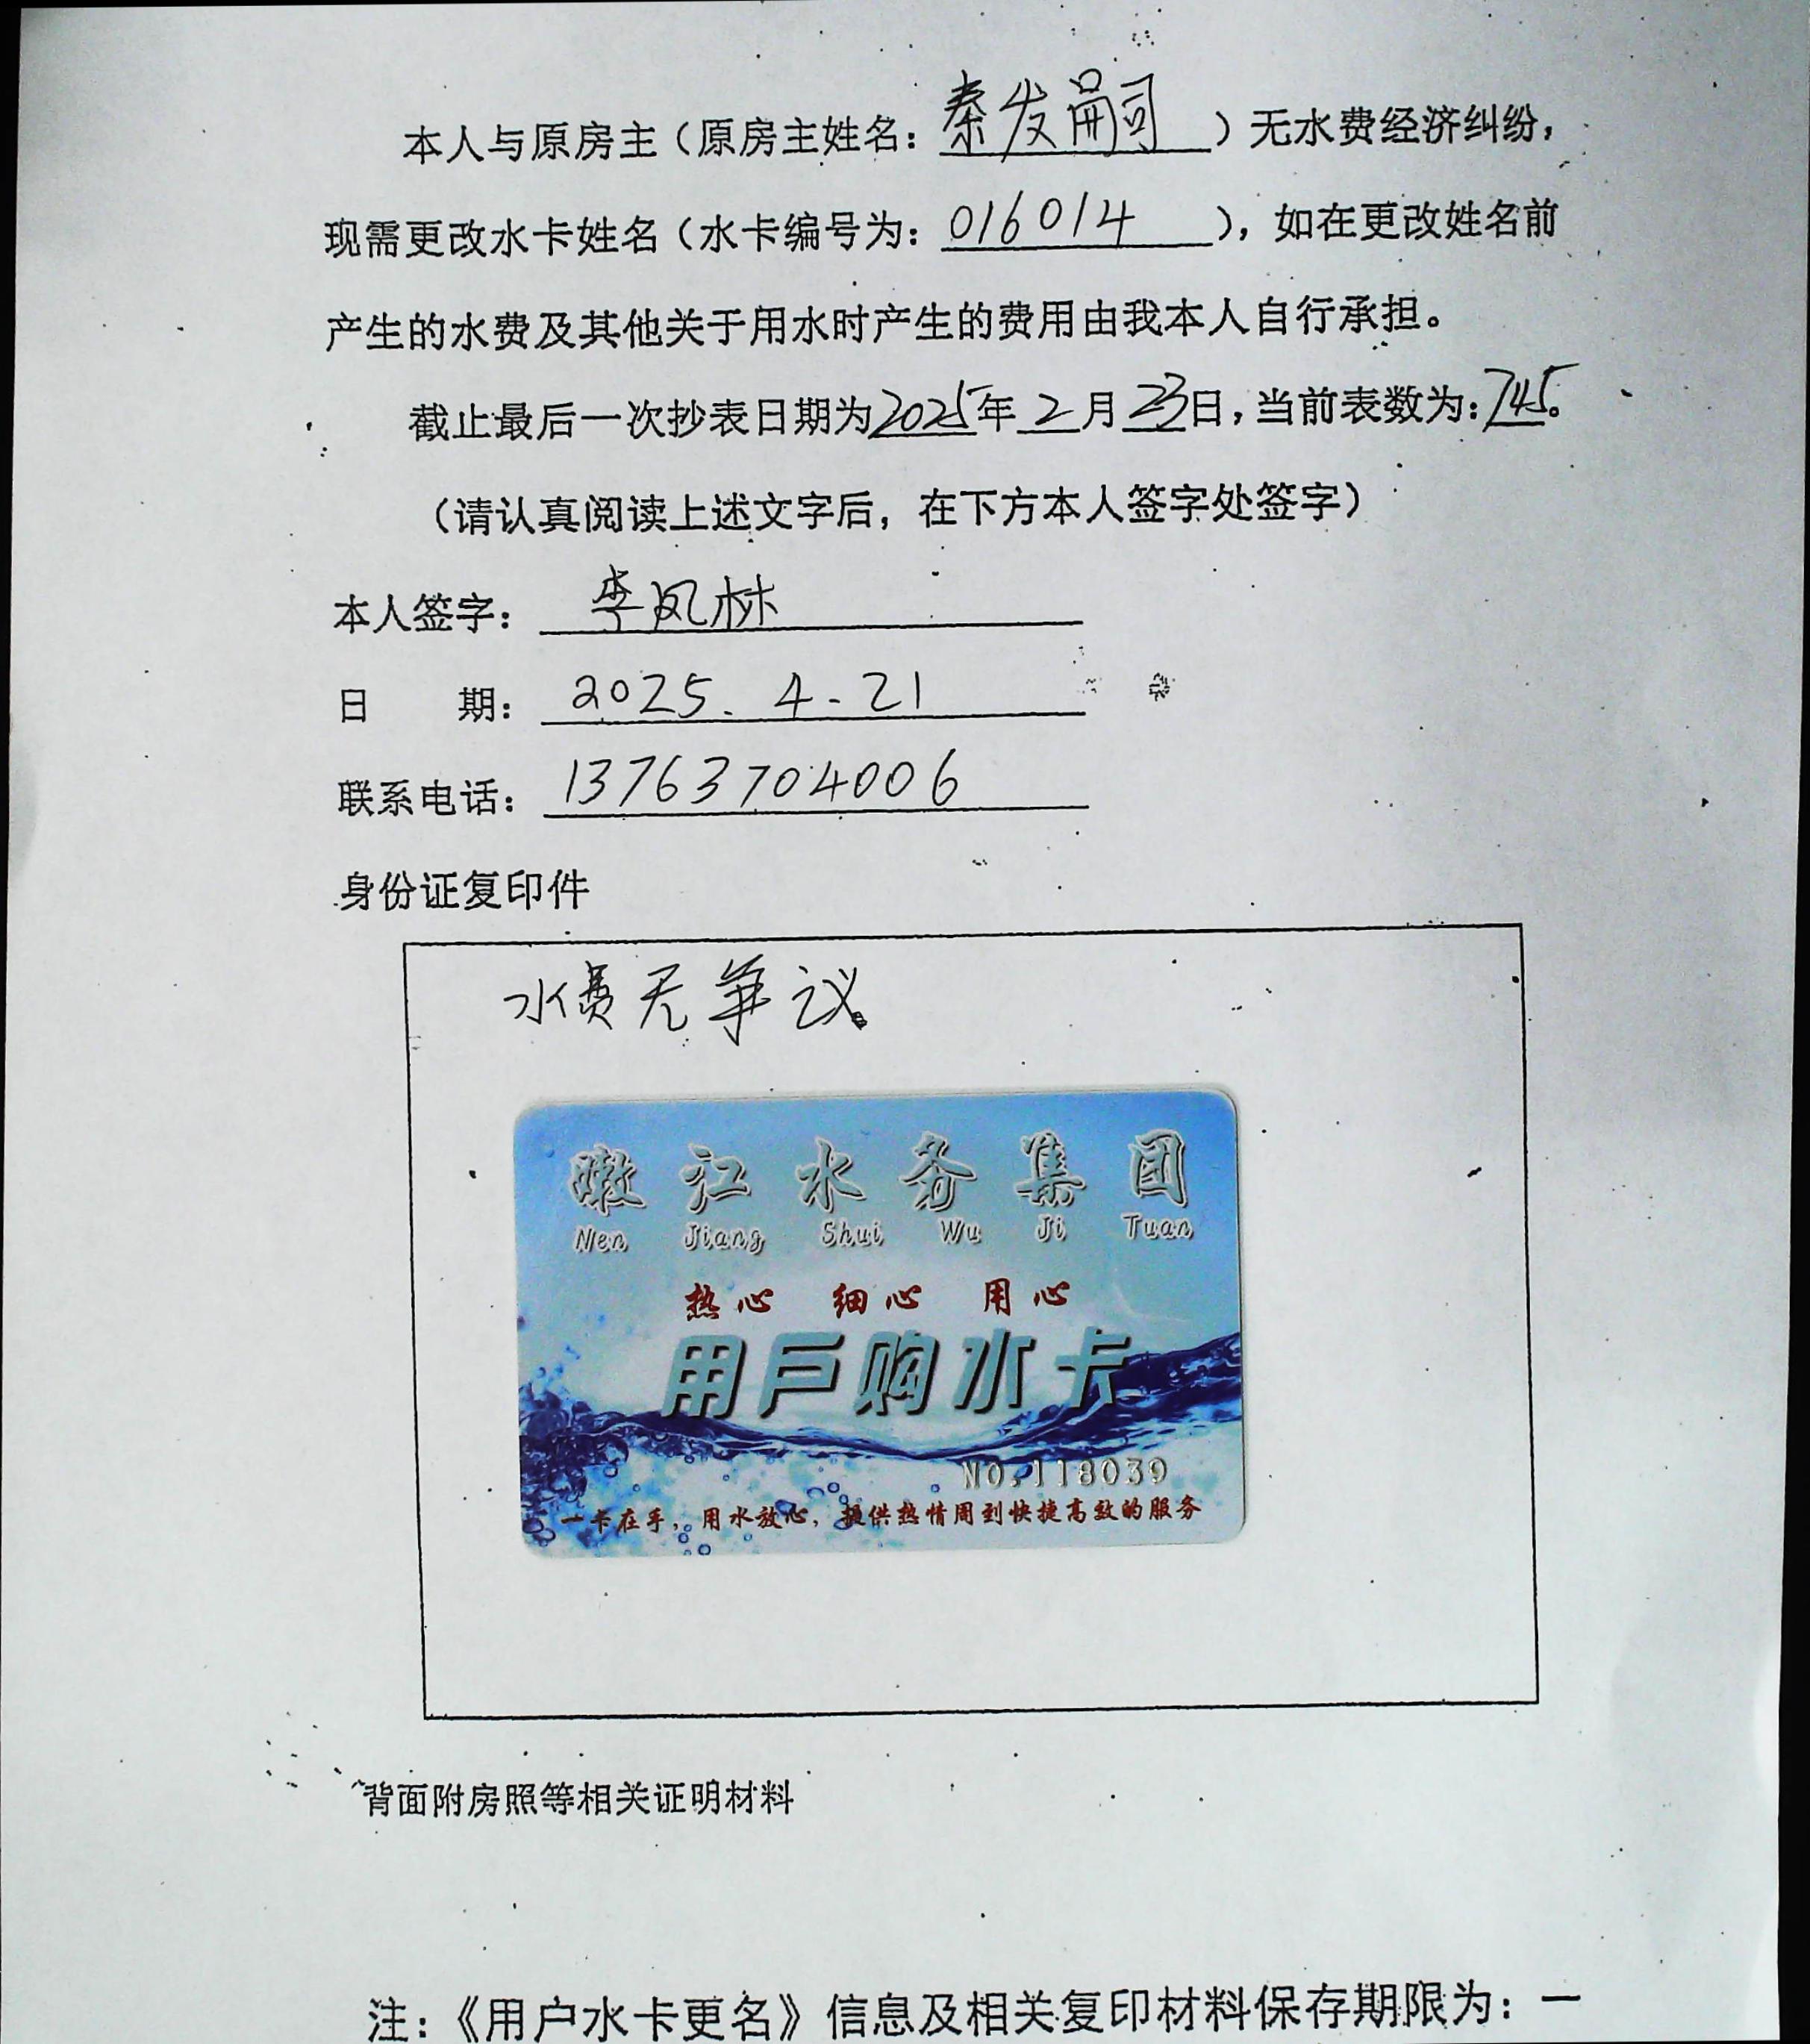 本人与原房主（原房主姓名：秦发嗣）无水费经济纠纷，
现需更改水卡姓名（水卡编号为：016014），如在更改姓名前
产生的水费及其他关于用水时产生的费用由我本人自行承担。
截止最后一次抄表日期为2025年2月23日，当前表数为：745。
（请认真阅读上述文字后，在下方本人签字处签字）
本人签字：李凤林
日 期：2025.4-21
联系电话：13763704006
身份证复印件
水费无争议
嫩江水务集团
Nen Jiang Shui Wu Ji Tuan
热心 细心 用心
用户购水卡
NO.118039
一卡在手，用水放心，提供热情周到快捷高效的服务
背面附房照等相关证明材料
注：《用户水卡更名》信息及相关复印材料保存期限为：一